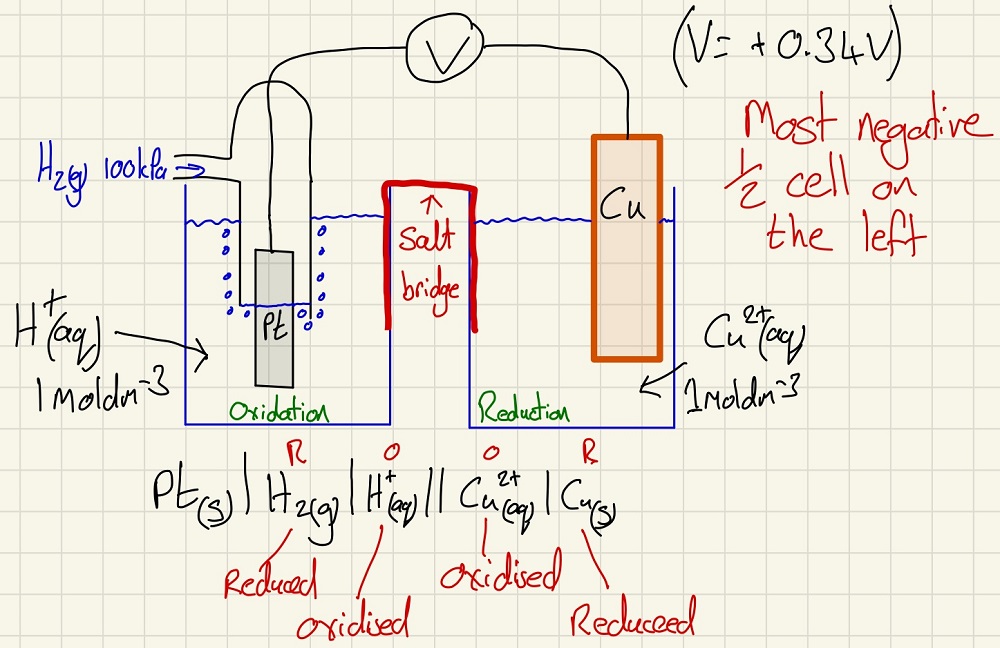 V
(V= +0.34V)
Most negative
½ cell on
the left
H₂(g) 100kPa
Cu
↑
Salt
bridge
Pt
H⁺(aq)
1moldm⁻³
Cu²⁺(aq)
1moldm⁻³
Oxidation
Reduction
R O O R
Pt(s) | H₂(g) | H⁺(aq) || Cu²⁺(aq) | Cu(s)
Reduced
oxidised
oxidised
Reduceed